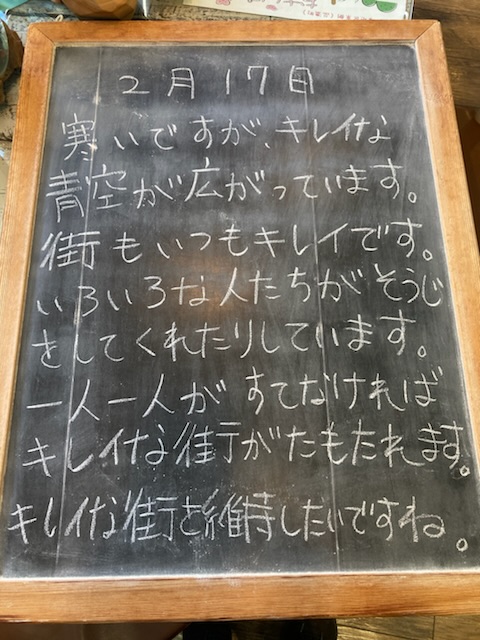 2月17日
寒いですが、キレイな
青空が広がっています。
街もいつもキレイです。
いろいろな人たちがそうじ
をしてくれたりしています。
一人一人がすてなければ
キレイな街がたもたれます。
キレイな街を維持したいですね。